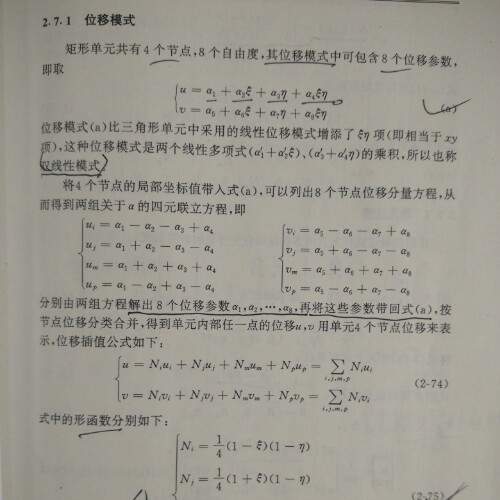 2.7.1 位移模式
矩形单元共有4个节点,8个自由度,其位移模式中可包含8个位移参数,
即取
u = α₁ + α₂ξ + α₃η + α₄ξη
v = α₅ + α₆ξ + α₇η + α₈ξη
(a)
位移模式(a)比三角形单元中采用的线性位移模式增添了ξη项(即相当于xy
项),这种位移模式是两个线性多项式(α′₁+α′₂ξ)、(α′₃+α′₄η)的乘积,所以也称
双线性模式。
将4个节点的局部坐标值带入式(a),可以列出8个节点位移分量方程,从
而得到两组关于α的四元联立方程,即
uᵢ = α₁ − α₂ − α₃ + α₄
uⱼ = α₁ + α₂ − α₃ − α₄
uₘ = α₁ + α₂ + α₃ + α₄
uₚ = α₁ − α₂ + α₃ − α₄
vᵢ = α₅ − α₆ − α₇ + α₈
vⱼ = α₅ + α₆ − α₇ − α₈
vₘ = α₅ + α₆ + α₇ + α₈
vₚ = α₅ − α₆ + α₇ − α₈
分别由两组方程解出8个位移参数α₁,α₂,⋯,α₈,再将这些参数带回式(a),按
节点位移分类合并,得到单元内部任一点的位移u,v用单元4个节点位移来表
示,位移插值公式如下:
u = Nᵢuᵢ + Nⱼuⱼ + Nₘuₘ + Nₚuₚ = ∑ Nᵢuᵢ
i,j,m,p
v = Nᵢvᵢ + Nⱼvⱼ + Nₘvₘ + Nₚvₚ = ∑ Nᵢvᵢ
i,j,m,p
(2-74)
式中的形函数分别如下:
Nᵢ = 1/4 (1 − ξ)(1 − η)
Nⱼ = 1/4 (1 + ξ)(1 − η)
(2-75)